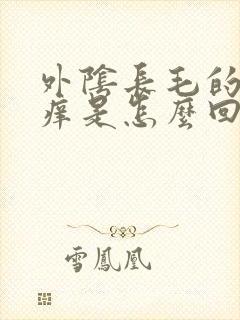 外陰長毛的
痒是怎麼回
雪鳳凰